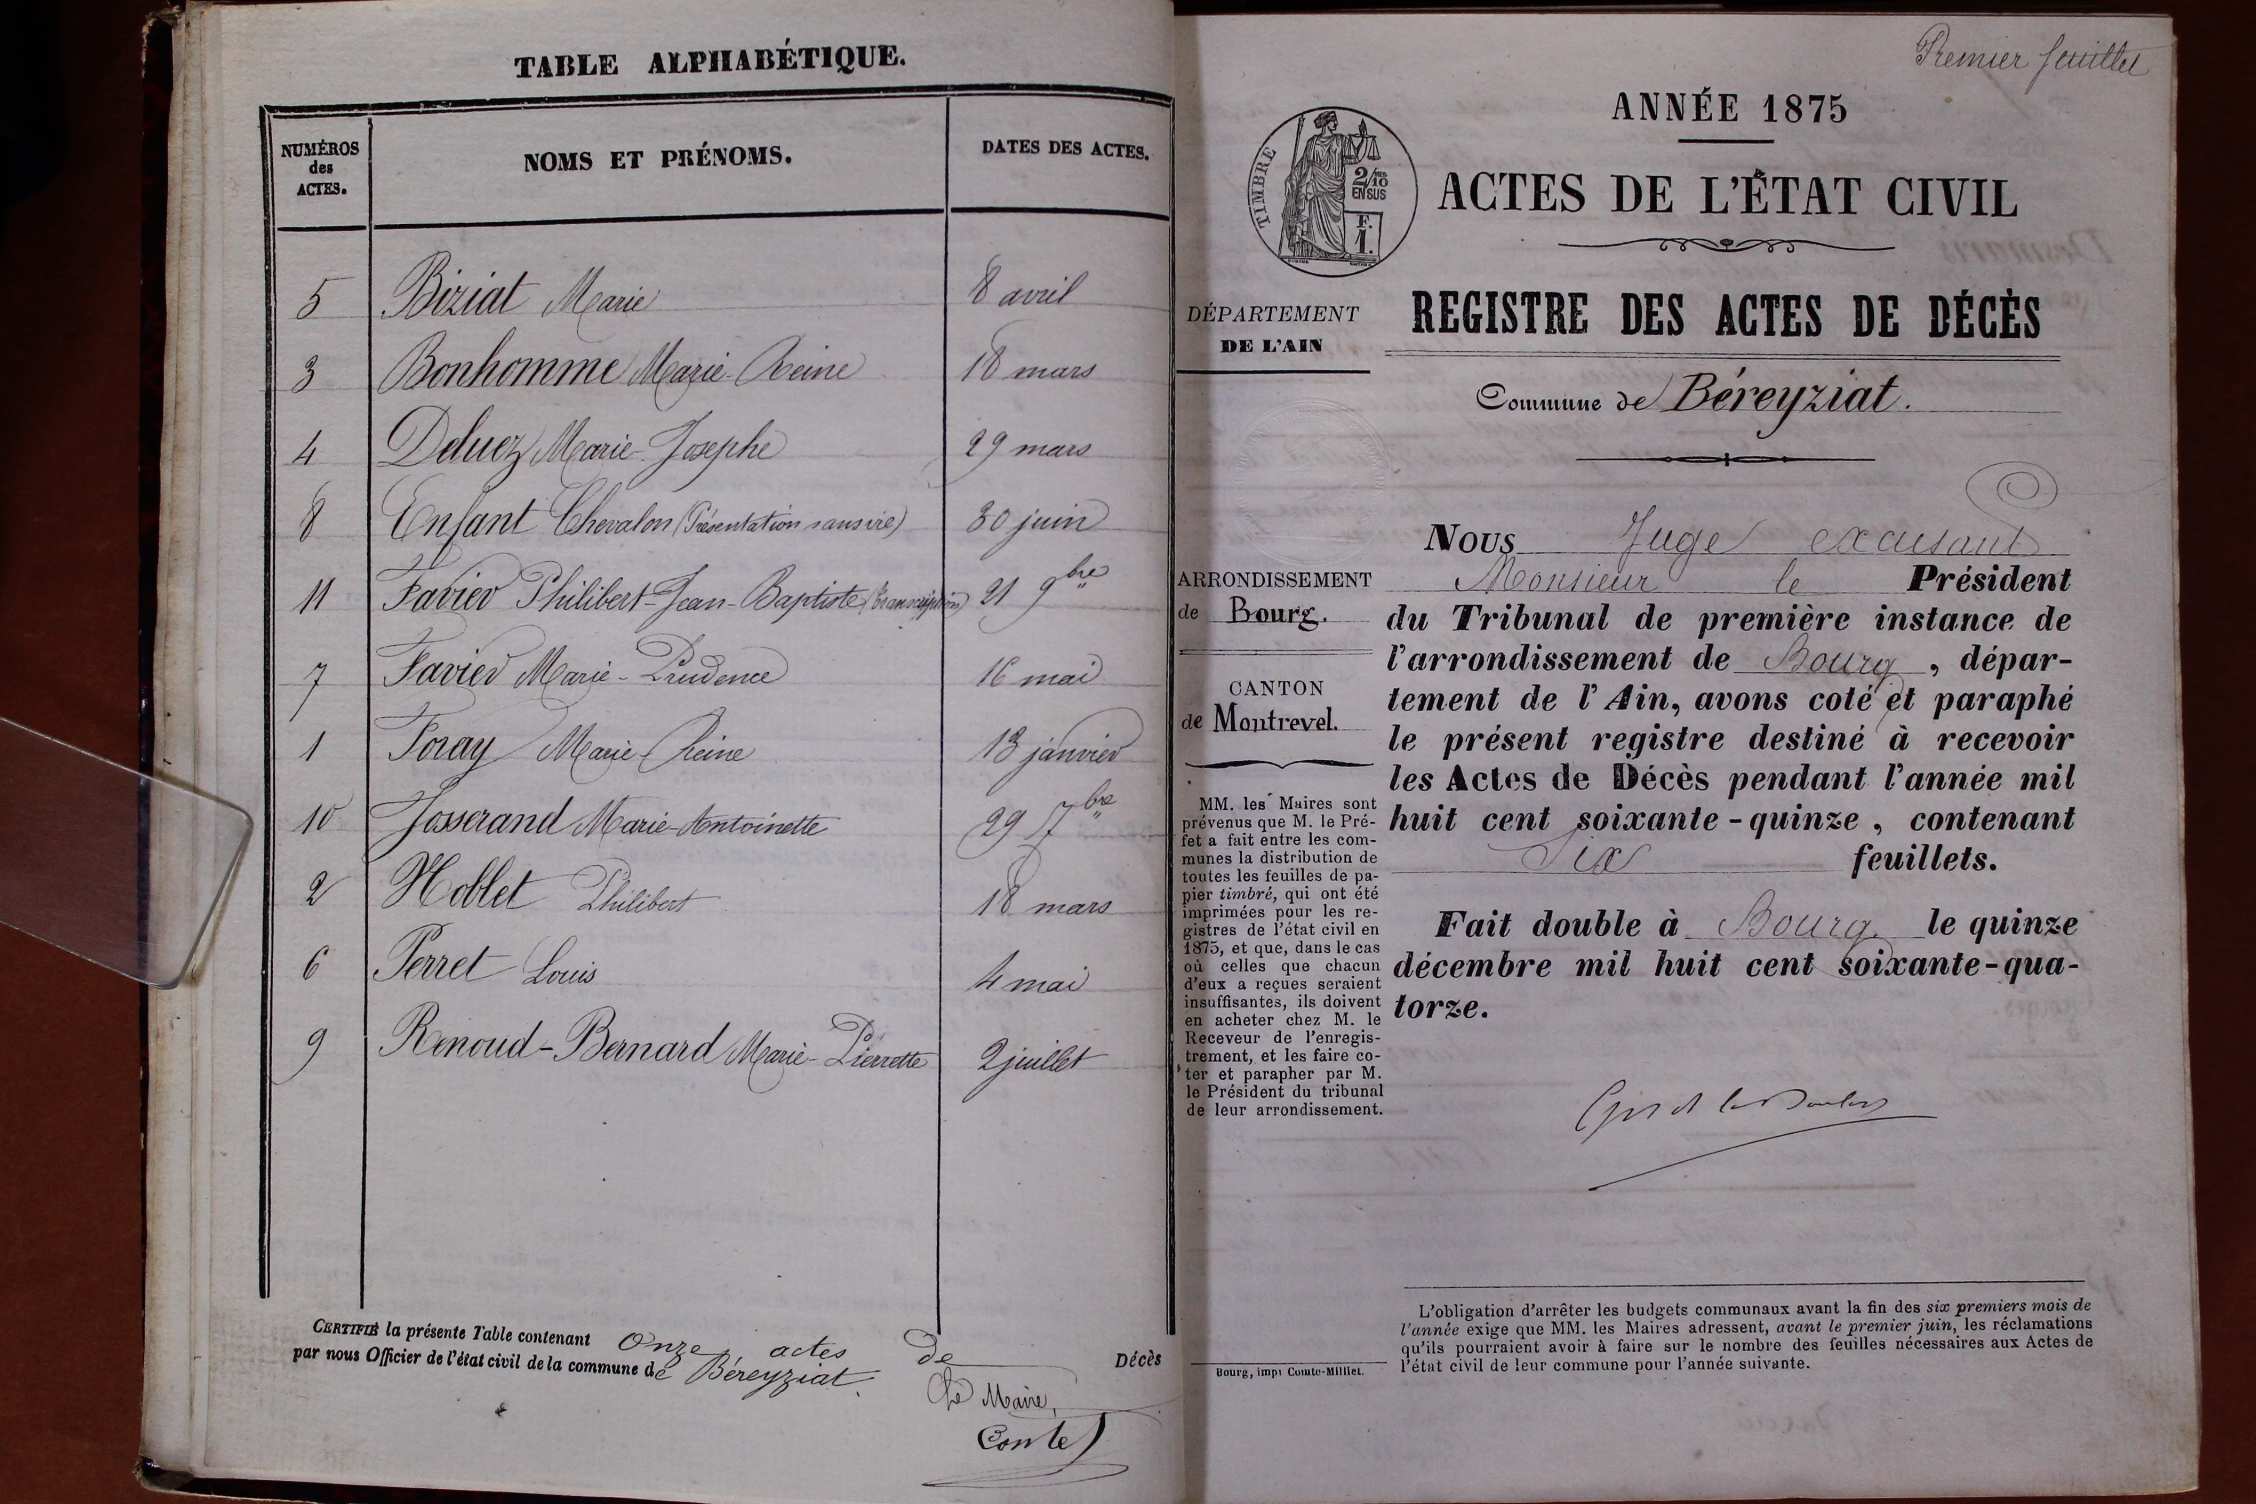 TABLE ALPHABÉTIQUE.
NUMÉROS des ACTES. NOMS ET PRÉNOMS. DATES DES ACTES.
5 Biziat Marie 8 avril
3 Bonhomme Marie-Reine 18 mars
4 Deluez Marie-Josephe 29 mars
8 Enfant Chevalon (Présentation sans vie) 30 juin
11 Favier Philibert-Jean-Baptiste (transcription) 21 9bre
7 Favier Marie-Prudence 16 mai
1 Foray Marie-Reine 13 janvier
10 Josserand Marie-Antoinette 29 7bre
2 Noblet Philibert 18 mars
6 Perret Louis 4 mai
9 Renoud-Bernard Marie-Pierrette 2 juillet
CERTIFIÉ la présente Table contenant Onze actes de Décès
par nous Officier de l'état civil de la commune de Béreyziat.
Le Maire,
Conte
Premier feuillet
ANNÉE 1875
TIMBRE
2/10 EN SUS
F. 1.
ACTES DE L'ÉTAT CIVIL
DÉPARTEMENT
DE L'AIN
REGISTRE DES ACTES DE DÉCÈS
Commune de Béreyziat.
ARRONDISSEMENT
de Bourg.
CANTON
de Montrevel.
MM. les Maires sont
prévenus que M. le Pré-
fet a fait entre les com-
munes la distribution de
toutes les feuilles de pa-
pier timbré, qui ont été
imprimées pour les re-
gistres de l'état civil en
1875, et que, dans le cas
où celles que chacun
d'eux a reçues seraient
insuffisantes, ils doivent
en acheter chez M. le
Receveur de l'enregis-
trement, et les faire co-
ter et parapher par M.
le Président du tribunal
de leur arrondissement.
Bourg, imp. Comte-Milliet.
Nous Juge excusant
Monsieur le Président
du Tribunal de première instance de
l'arrondissement de Bourg, dépar-
tement de l'Ain, avons coté et paraphé
le présent registre destiné à recevoir
les Actes de Décès pendant l'année mil
huit cent soixante-quinze, contenant
Six feuillets.
Fait double à Bourg, le quinze
décembre mil huit cent soixante-qua-
torze.
L'obligation d'arrêter les budgets communaux avant la fin des six premiers mois de
l'année exige que MM. les Maires adressent, avant le premier juin, les réclamations
qu'ils pourraient avoir à faire sur le nombre des feuilles nécessaires aux Actes de
l'état civil de leur commune pour l'année suivante.